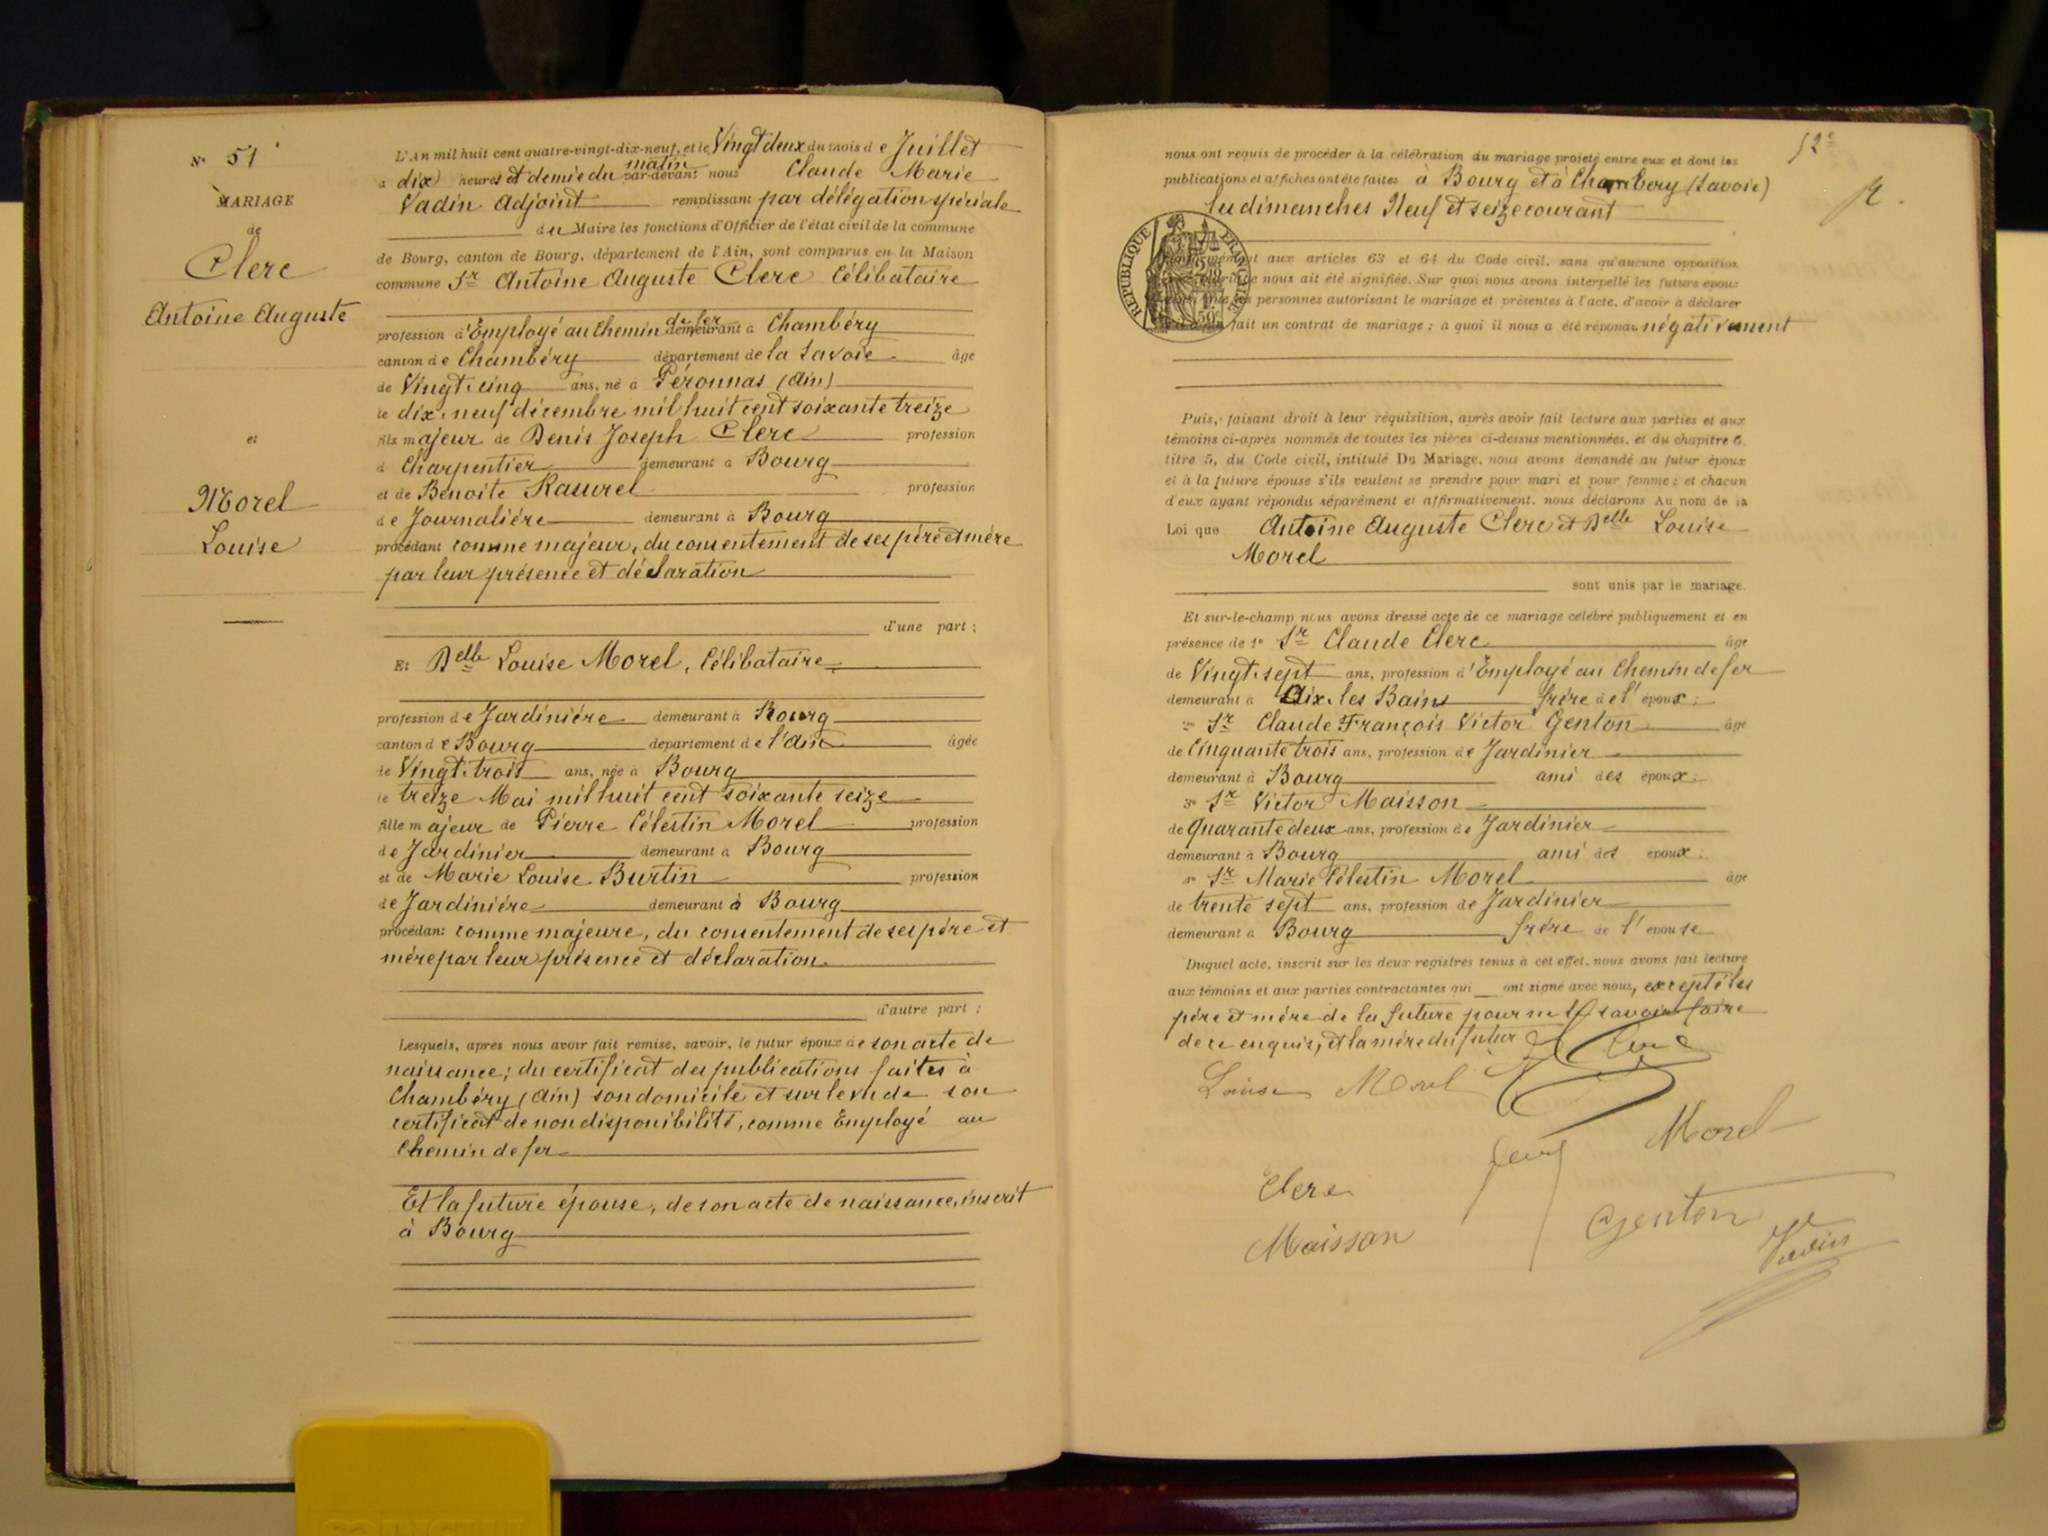 N° 51
MARIAGE
de
Clerc
Antoine Auguste
et
Morel
Louise
L'An mil huit cent quatre-vingt-dix-neuf, et le Vingt deux du mois de Juillet
à dix heures et demie du matin par-devant nous Claude Marie
Vadin Adjoint remplissant par délégation spéciale
du Maire les fonctions d'Officier de l'état civil de la commune
de Bourg, canton de Bourg, département de l'Ain, sont comparus en la Maison
commune Sr Antoine Auguste Clerc Célibataire
profession d'Employé au Chemin de fer demeurant à Chambéry
canton de Chambéry département de la Savoie âgé
de Vingt-cinq ans, né à Péronnas (Ain)
le dix-neuf décembre mil huit cent soixante treize
fils majeur de Denis Joseph Clerc profession
d Charpentier demeurant à Bourg
et de Benoite Rasurel profession
de Journalière demeurant à Bourg
procédant comme majeur, du consentement de ses père et mère
par leur présence et déclaration
d'une part ;
Et Delle Louise Morel, Célibataire
profession de Jardinière demeurant à Bourg
canton de Bourg département de l'Ain âgée
de Vingt-trois ans, née à Bourg
le treize Mai mil huit cent soixante seize
fille majeur de Pierre Célestin Morel profession
de Jardinier demeurant à Bourg
et de Marie Louise Burtin profession
de Jardinière demeurant à Bourg
procédant comme majeure, du consentement de ses père et
mère par leur présence et déclaration
d'autre part ;
Lesquels, après nous avoir fait remise, savoir, le futur époux de son acte de
naissance ; du certificat des publications faites à
Chambéry (Ain) son domicile et sur le vu de son
certificat de non disponibilité, comme Employé au
Chemin de fer
Et la future épouse, de son acte de naissance, inscrit
à Bourg
52e
nous ont requis de procéder à la célébration du mariage projeté entre eux et dont les
publications et affiches ont été faites à Bourg et à Chambéry (Savoie)
les dimanches Neuf et seize courant
RÉPUBLIQUE FRANÇAISE
aux articles 63 et 64 du Code civil, sans qu'aucune opposition
nous ait été signifiée. Sur quoi nous avons interpellé les futurs époux
personnes autorisant le mariage et présentes à l'acte, d'avoir à déclarer
fait un contrat de mariage ; à quoi il nous a été répondu négativement
Puis, faisant droit à leur réquisition, après avoir fait lecture aux parties et aux
témoins ci-après nommés de toutes les pièces ci-dessus mentionnées, et du chapitre 6,
titre 5, du Code civil, intitulé Du Mariage, nous avons demandé au futur époux
et à la future épouse s'ils veulent se prendre pour mari et pour femme ; et chacun
d'eux ayant répondu séparément et affirmativement, nous déclarons Au nom de la
Loi que Antoine Auguste Clerc et Delle Louise
Morel
sont unis par le mariage.
Et sur-le-champ nous avons dressé acte de ce mariage célébré publiquement et en
présence de 1° Sr Claude Clerc âgé
de Vingt-sept ans, profession d'Employé au Chemin de fer
demeurant à Aix-les Bains frère de l'époux ;
2° Sr Claude François Victor Genton âgé
de Cinquante trois ans, profession de Jardinier
demeurant à Bourg ami des époux ;
3° Sr Victor Maisson
de Quarante deux ans, profession de Jardinier
demeurant à Bourg ami des époux ;
4° Sr Marie Célestin Morel âgé
de trente sept ans, profession de Jardinier
demeurant à Bourg frère de l'épouse
Duquel acte, inscrit sur les deux registres tenus à cet effet, nous avons fait lecture
aux témoins et aux parties contractantes qui ont signé avec nous, excepté les
père et mère de la future pour ne savoir faire
de ce enquis, et la mère du futur
Louise Morel
Morel
Clerc
Maisson
Genton
Vadin